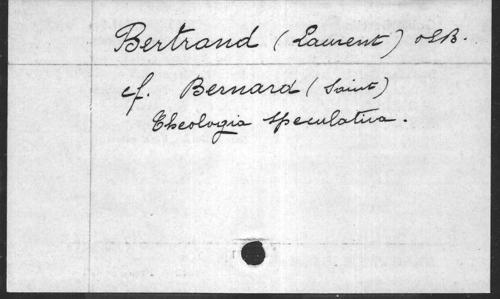 Bertrand (Laurent) OSB.
cf. Bernard (Saint)
Theologia speculativa.